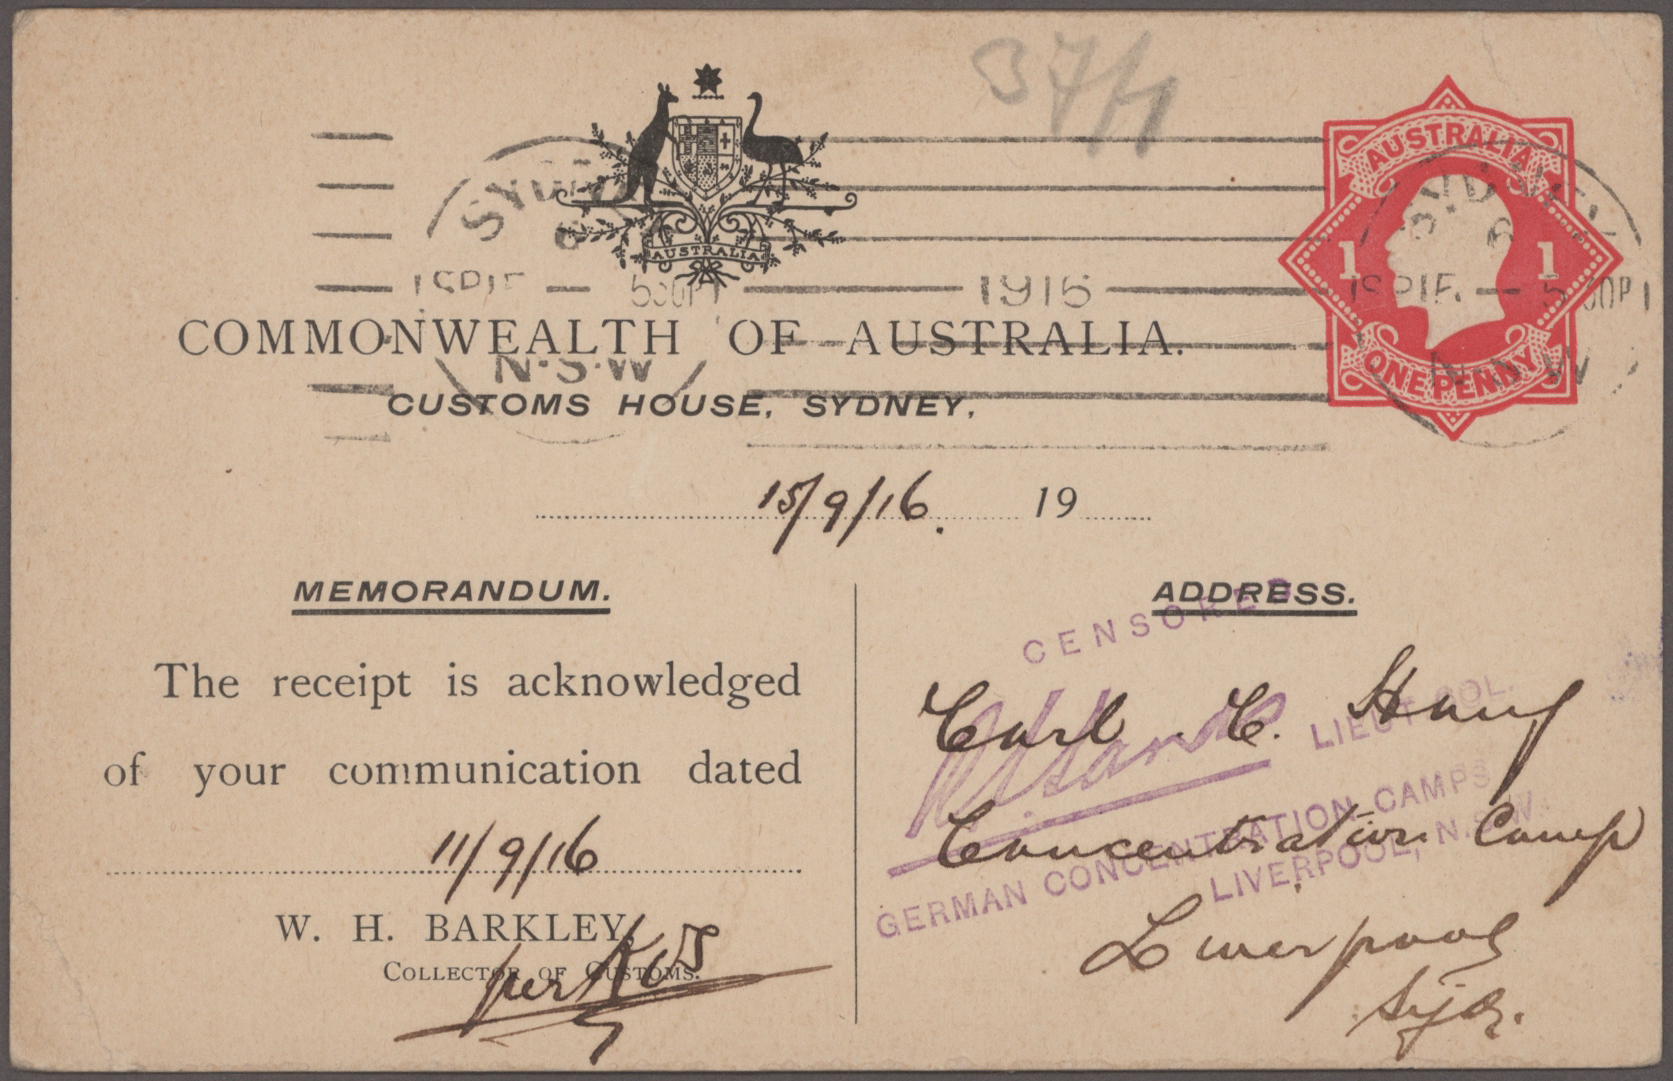 37/1
AUSTRALIA
1 1
ONE PENNY
SYDNEY
AUSTRALIA
15 SP 15 — 5 30 P — 1916
N.S.W
COMMONWEALTH OF AUSTRALIA.
CUSTOMS HOUSE, SYDNEY,
15/9/16. 19
MEMORANDUM.
The receipt is acknowledged
of your communication dated
11/9/16
W. H. BARKLEY,
COLLECTOR OF CUSTOMS.
per
ADDRESS.
CENSORED
Carl C.
LIEUT COL.
Concentration Camp
GERMAN CONCENTRATION CAMPS
LIVERPOOL, N.S.W.
Liverpool
Syd.